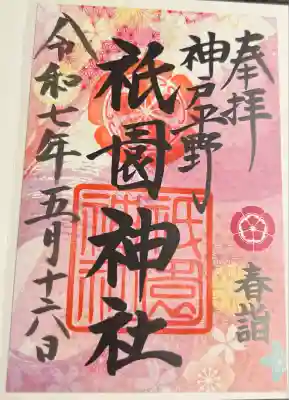 奉拝
神戸平野
祇園神社
令和七年五月十六日
春詣
祇園神社